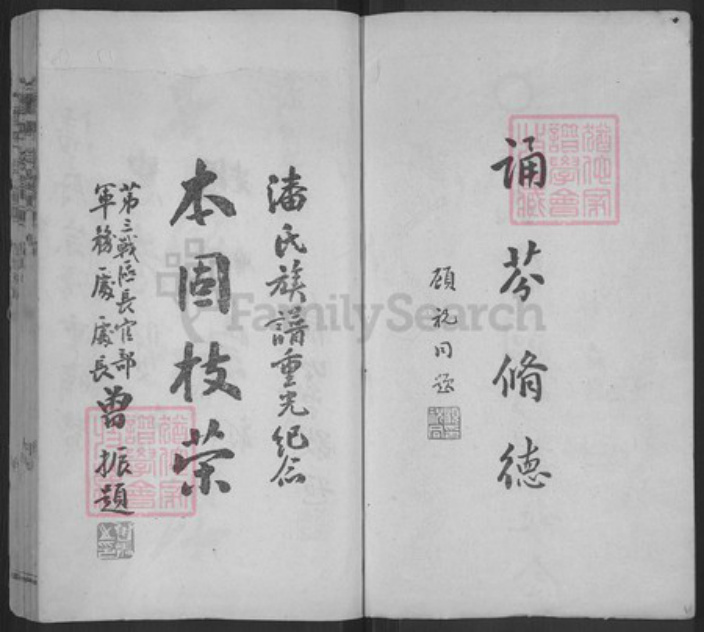 誦芬脩德
顧祝同題
潘氏族譜重光紀念
本固枝榮
第三戰區長官部
軍務處處長
曾振題
FamilySearch